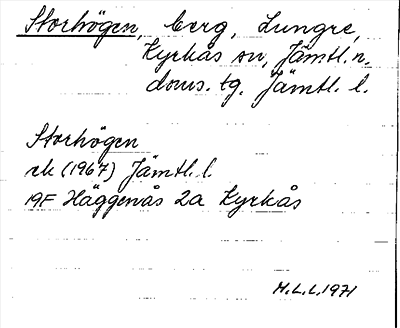 Storhögen, berg, Lungre,
Kyrkås sn, Jämtl. n.
doms. tg. Jämtl. l.
Storhögen
rk (1967) Jämtl. l.
19F Häggenås 2a Kyrkås
M.L.L. 1971